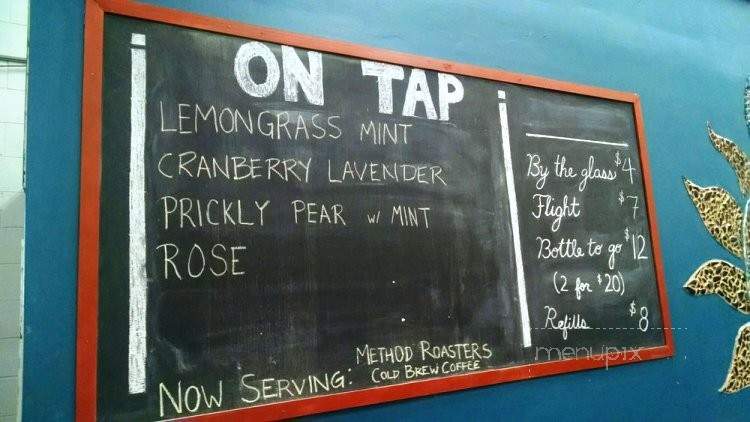 ON TAP
LEMONGRASS MINT
CRANBERRY LAVENDER
PRICKLY PEAR w/ MINT
ROSE
NOW SERVING: METHOD ROASTERS
COLD BREW COFFEE
By the glass $4
Flight $7
Bottle to go $12
(2 for $20)
Refills $8
menupix